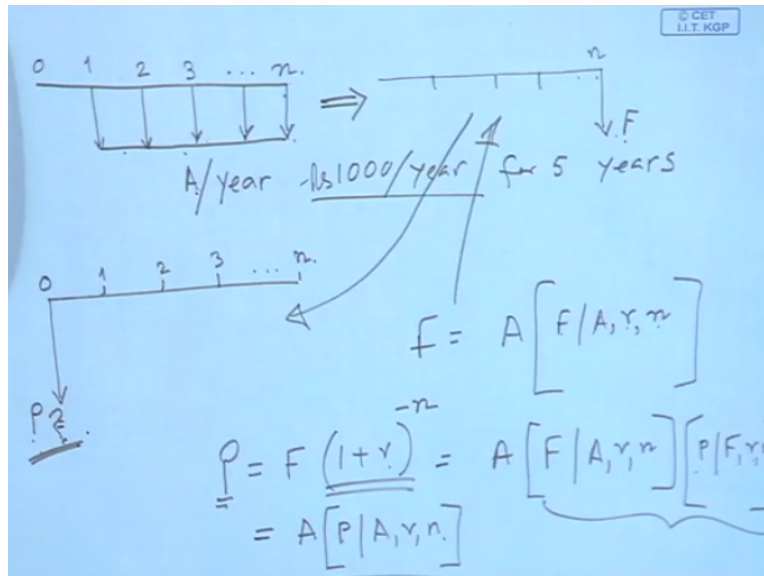 © CET
I.I.T. KGP
0 1 2 3 ... n.
n
⇒
F
A/year Rs1000/year for 5 years
0 1 2 3 ... n.
P?
F = A [F/A, r, n]
P = F (1+r)^-n = A [F/A, r, n] [P/F, r,
= A [P/A, r, n.]